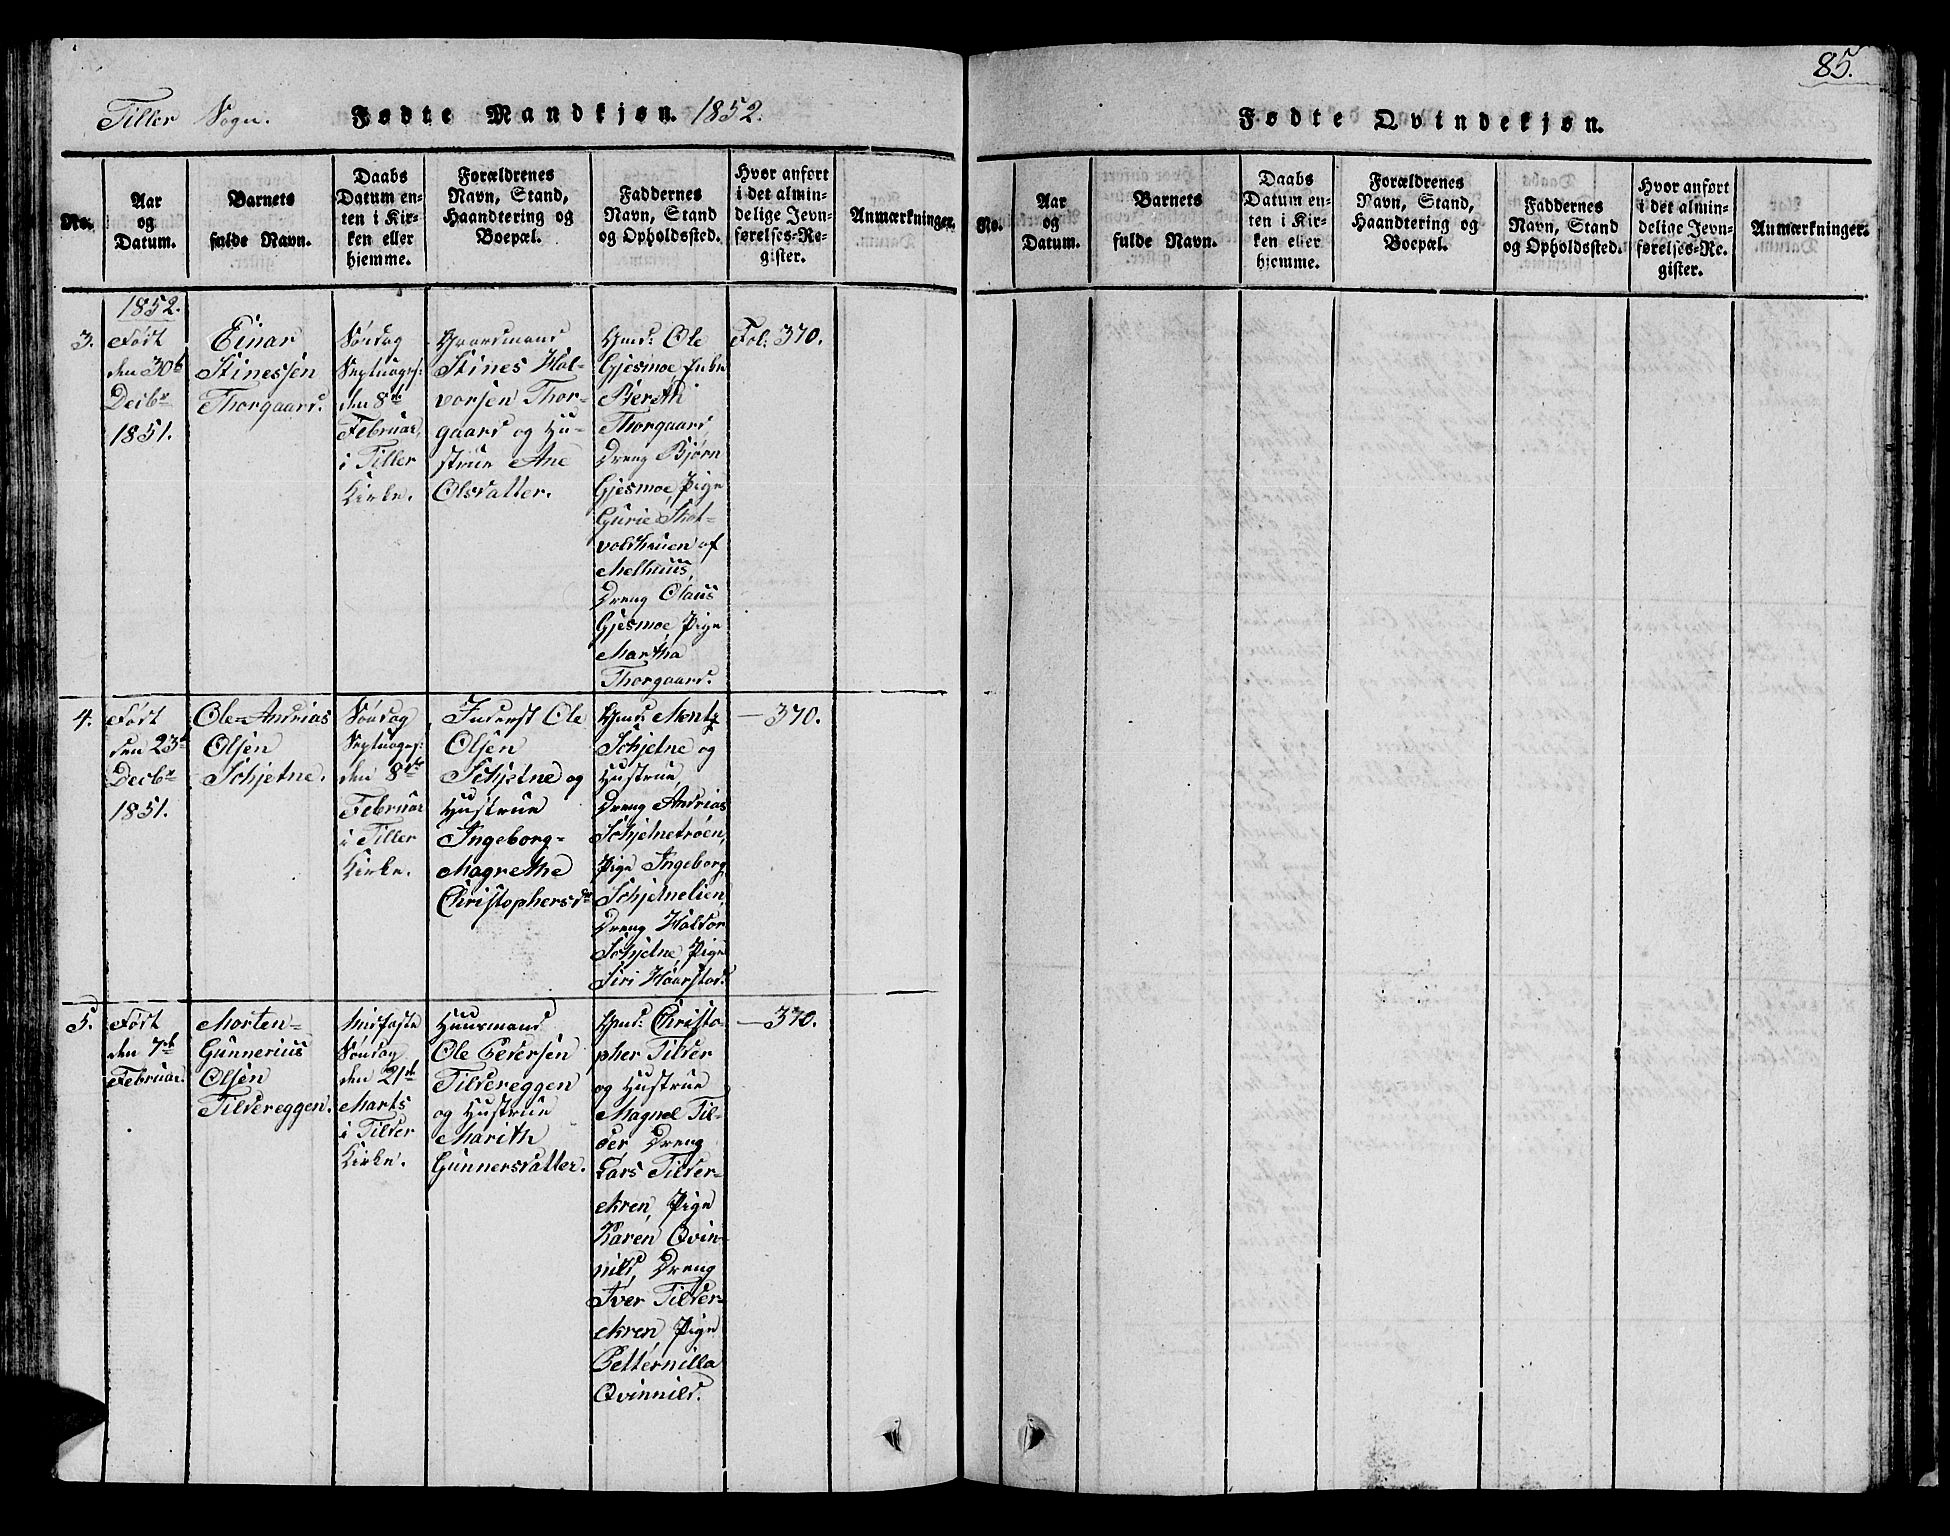 85.
Tiller Sogn. Fødte Mandkjøn. 1852.
No.
Aar
og
Datum.
Barnets
fulde Navn.
Daabs
Datum en-
ten i Kir-
ken eller
hjemme.
Forældrenes
Navn, Stand,
Haandtering og
Boepæl.
Faddernes
Navn, Stand
og Opholdssted.
Hvor anført
i det almin-
delige Jevn-
førelses-Re-
gister.
Anmærkninger.
3.
1852.
Født
den 30te
Decbr
1851.
Einar
Stinessen
Thorgaard.
Søndag
Septuages:
den 8de
Februar,
i Tiller
Kirke.
Gaardmand
Stines Hal-
vorsen Thor-
gaard og Hu-
strue Ane
Olsdatter.
Gmd: Ole
Gjesmoe, Enke
Bereth
Thorgaard,
Dreng Bjørn
Gjesmoe, Pige
Gurie
voldhuen af
Melhuus,
Dreng Olaus
Gjesmoe, Pige
Martha
Thorgaard.
Fol: 370.
4.
Født
den 23de
Decbr
1851.
Ole-Andrias
Olsen
Schjetne.
Søndag
Septuages:
den 8de
Februar
i Tiller
Kirke.
Inderst Ole
Olsen
Schjetne og
Hustrue
Ingeborg-
Magrethe
Christophersdr
Gmd: Mentz
Schjetne og
Hustrue
Dreng Andrias
Schjetnetrøen,
Pige Ingeborg
Schjetnelien,
Dreng Haldor
Schjetne, Pige
Siri Haarstad.
— 370.
5.
Født
den 7de
Februar.
Morten-
Gunnerius
Olsen
Tildereggen.
Midfaste
Søndag
den 21de
Marts
i Tilder
Kirke.
Huusmand
Ole Pedersen
Tildereggen
og Hustrue
Marith
Gunnersdatter.
Gmd: Christo-
pher Tilder
og Hustrue
Magnel Til-
der Dreng
Lars Tilder-
ekren, Pige
Karen Qvin-
nild, Dreng
Iver Tilder-
ekren, Pige
Petternilla
Qvinnild.
— 370.
Fødte Qvindekjøn.
No.
Aar
og
Datum.
Barnets
fulde Navn.
Daabs
Datum en-
ten i Kir-
ken eller
hjemme.
Forældrenes
Navn, Stand,
Haandtering og
Boepæl.
Faddernes
Navn, Stand
og Opholdssted.
Hvor anført
i det almin-
delige Jevn-
førelses-Re-
gister.
Anmærkninger.